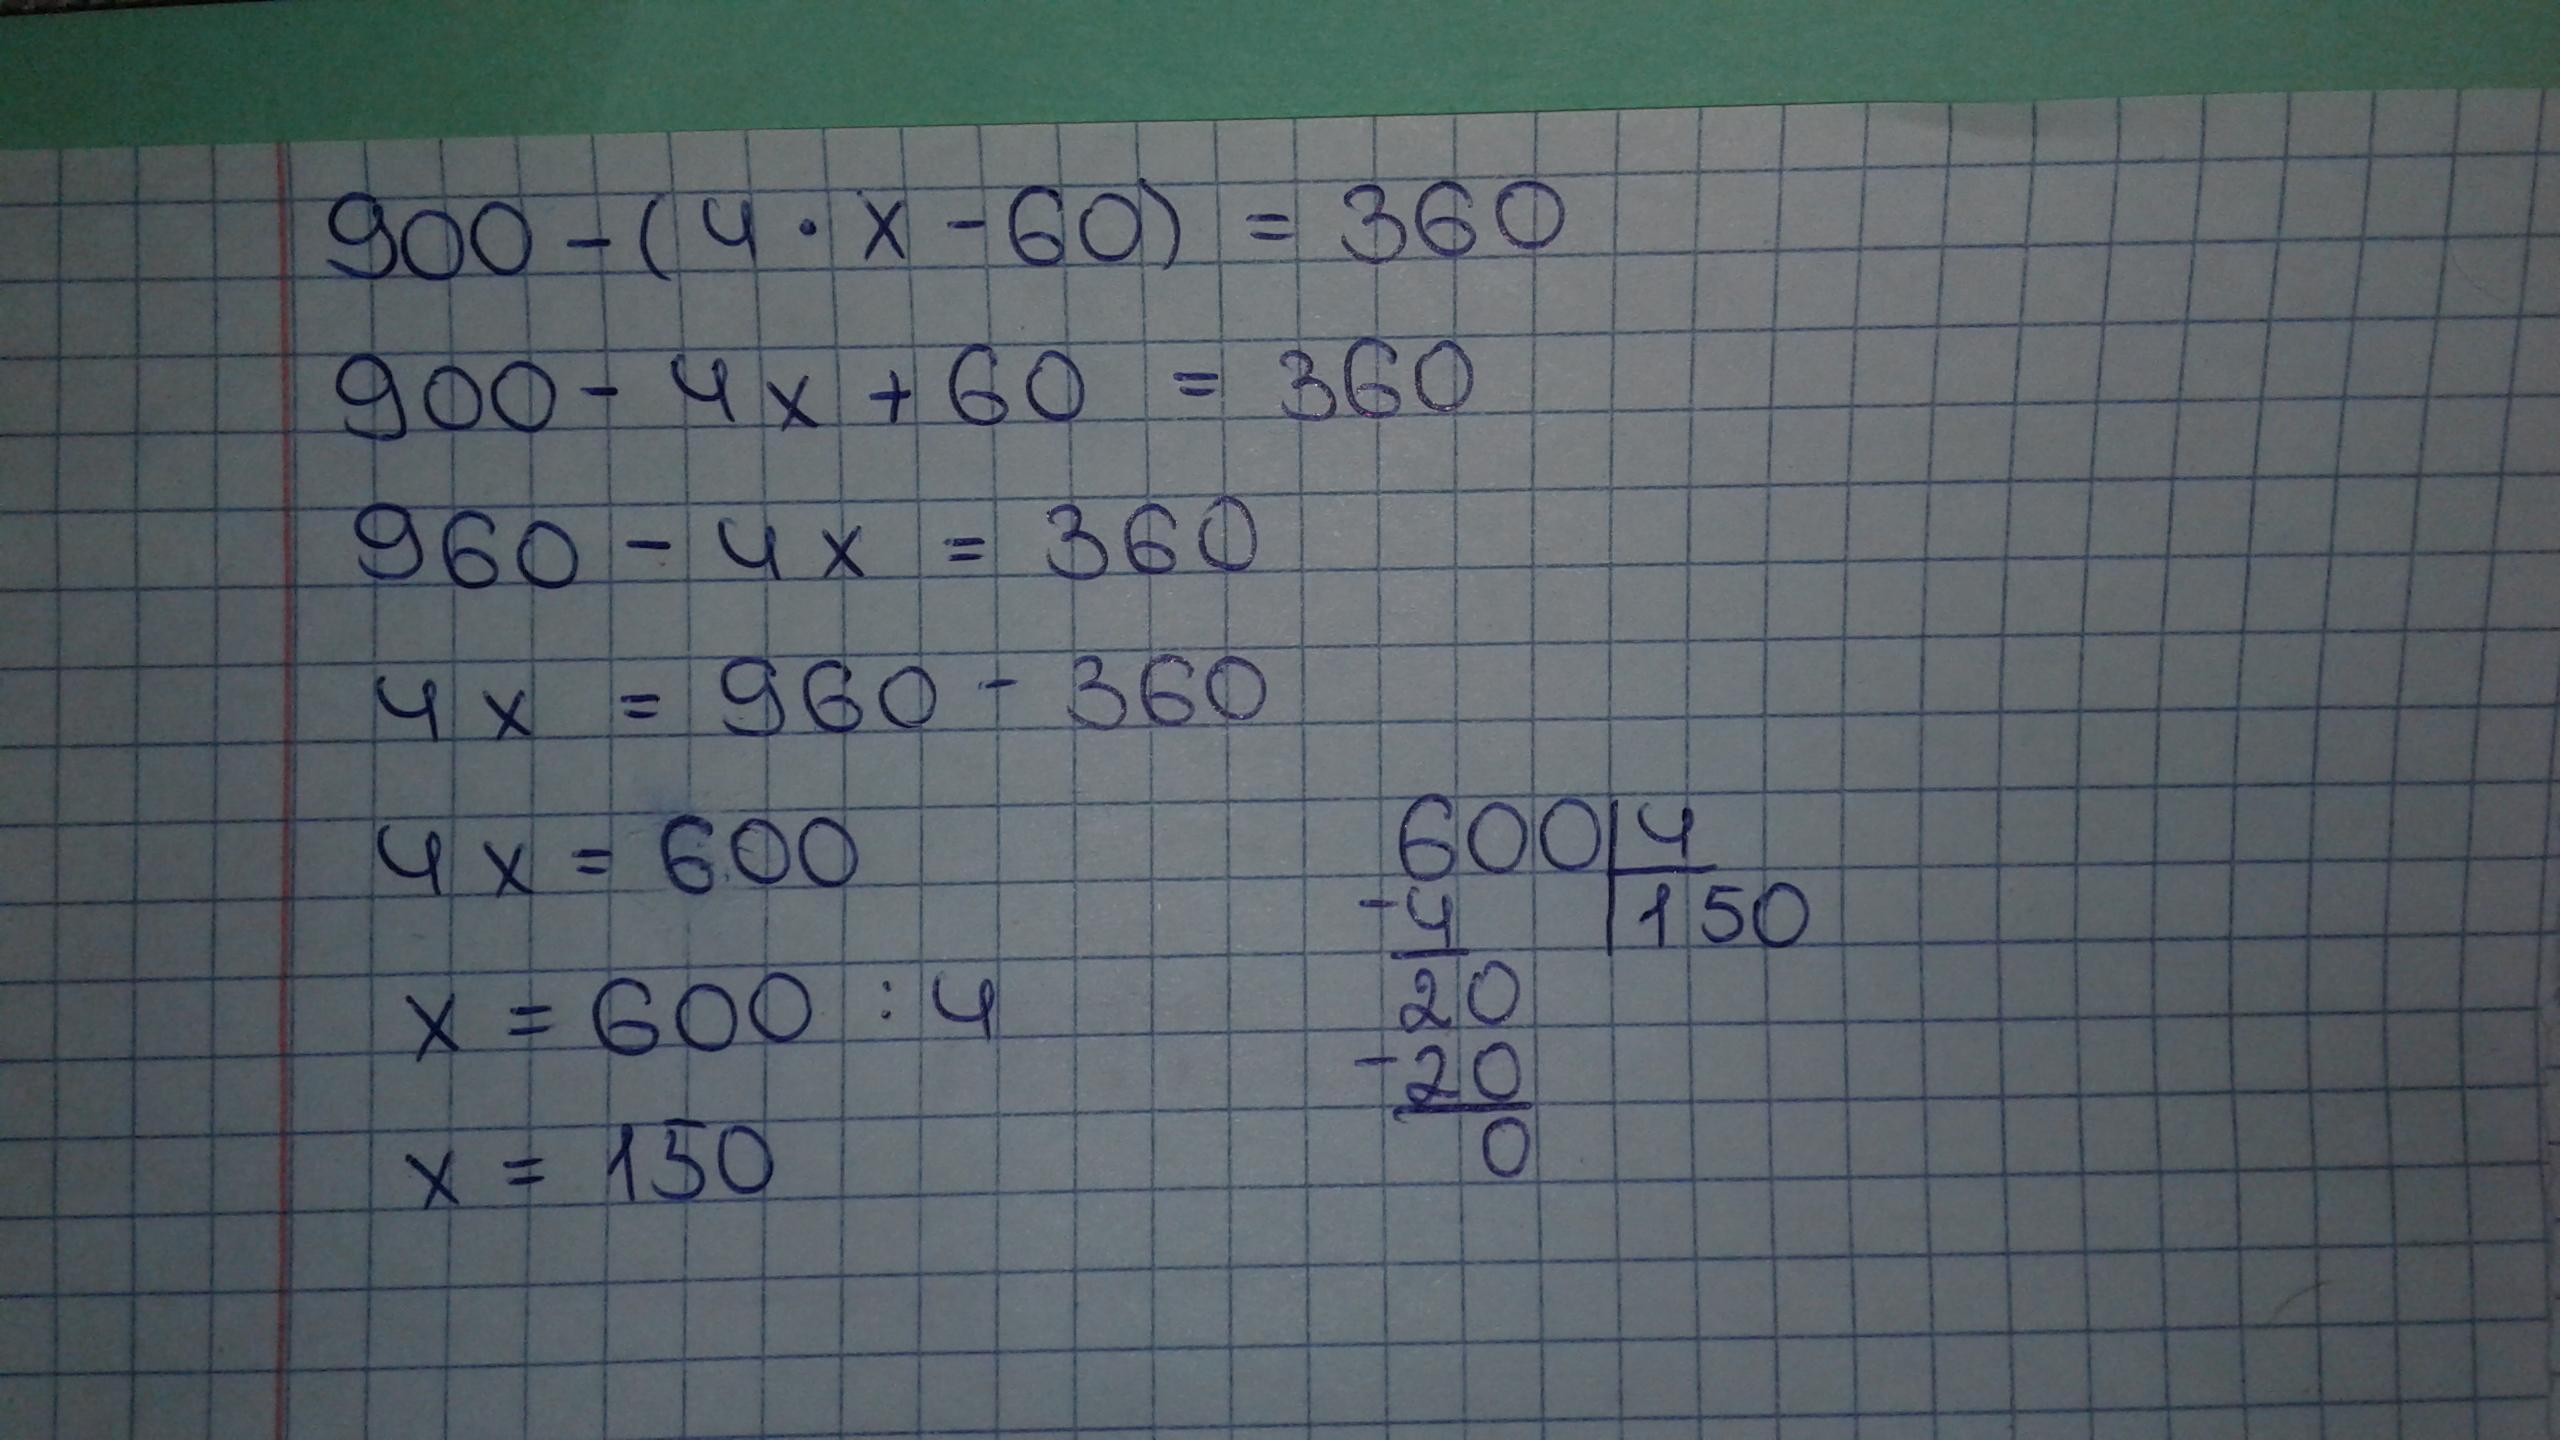 900 - (4 · x - 60) = 360
900 - 4x + 60 = 360
960 - 4x = 360
4x = 960 - 360
4x = 600
x = 600 : 4
x = 150
600|4
-4 |150
20
-20
0